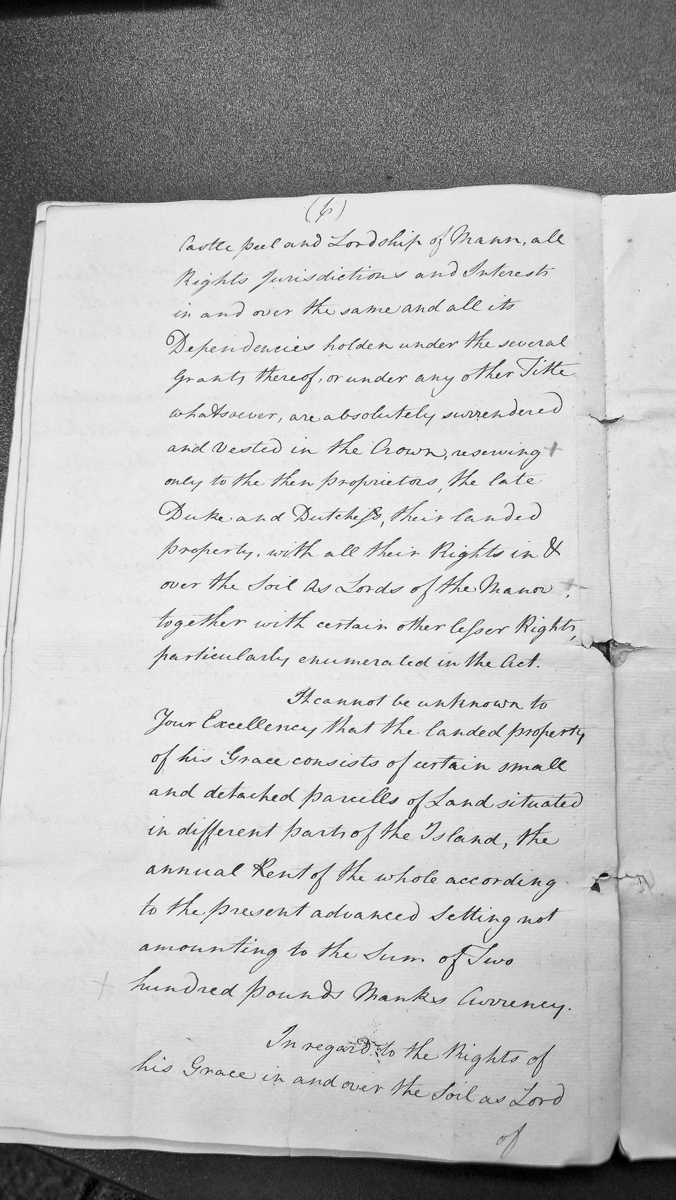 (6)
Castle peel and Lordship of Mann, all
Rights Jurisdictions and Interests
in and over the same and all its
Dependencies holden under the several
Grants thereof, or under any other Title
whatsoever, are absolutely surrendered
and vested in the Crown, reserving +
only to the then proprietors, the late
Duke and Dutchess, their landed
property, with all their Rights in &
over the Soil as Lords of the Manor +,
together with certain other lesser Rights,
particularly enumerated in the Act.
It cannot be unknown to
Your Excellency that the landed property
of his Grace consists of certain small
and detached parcells of Land situated
in different parts of the Island, the
annual Rent of the whole according
to the present advanced Setting not
amounting to the Sum of Two
+ hundred pounds Manks Currency.
In regard to the Rights of
his Grace in and over the Soil as Lord
of